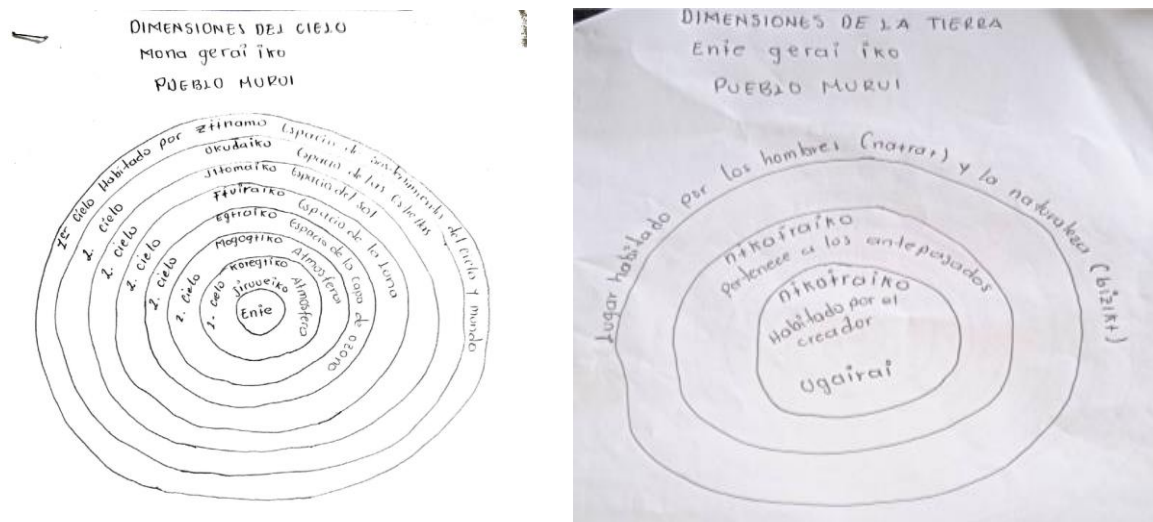 DIMENSIONES DEL CIELO
Mona gerai iko
PUEBLO MURUI
1er cielo Habitado por ziinamo Espacio de del cielo y mundo
2. cielo ukudaiko Espacio de las Estrellas
2. cielo Jitomaiko Espacio del sol
2. cielo Fɨvuiraiko Espacio de la luna
2. cielo Egɨraiko Espacio de la capa de ozono
2. cielo Mogogɨiko Atmosfera
2. cielo Koregɨiko Atmosfera
jiruveiko
Enie
DIMENSIONES DE LA TIERRA
Enie gerai iko
PUEBLO MURUI
Lugar habitado por los hombres (naɨraɨ) y la naturaleza (bizikɨ)
nɨkoiraiko
pertenece a los antepasados
nɨkoiraiko
Habitado por el
creador
ugairai